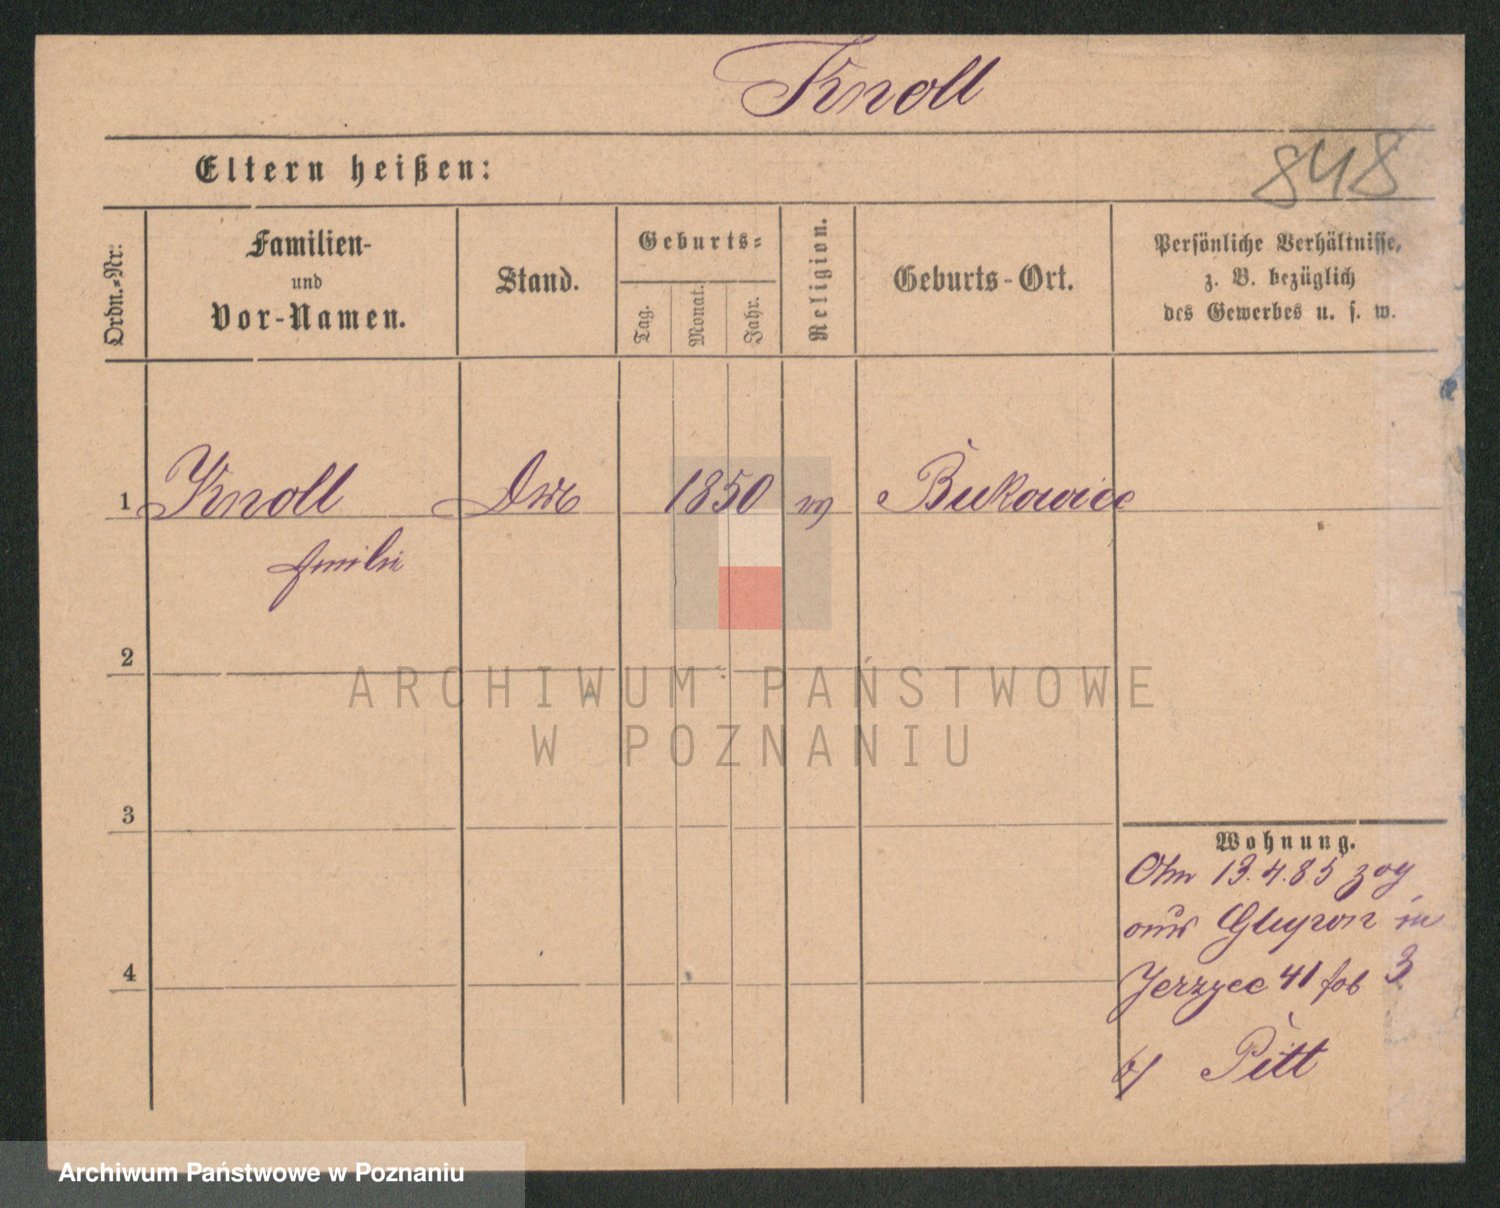 Knoll
848
Eltern heißen:
Ordn.-Nr:
Familien-
und
Vor-Namen.
Stand.
Geburts-
Tag.
Monat.
Jahr.
Religion.
Geburts-Ort.
Persönliche Verhältnisse,
z. B. bezüglich
des Gewerbes u. s. w.
1 Knoll 1850 Bukowiec
Emilie
2
ARCHIWUM PAŃSTWOWE
W POZNANIU
3
Wohnung.
Am 13.4.85 zog
aus in
Jerzyce 41 3
b/ Pitt
4
Archiwum Państwowe w Poznaniu